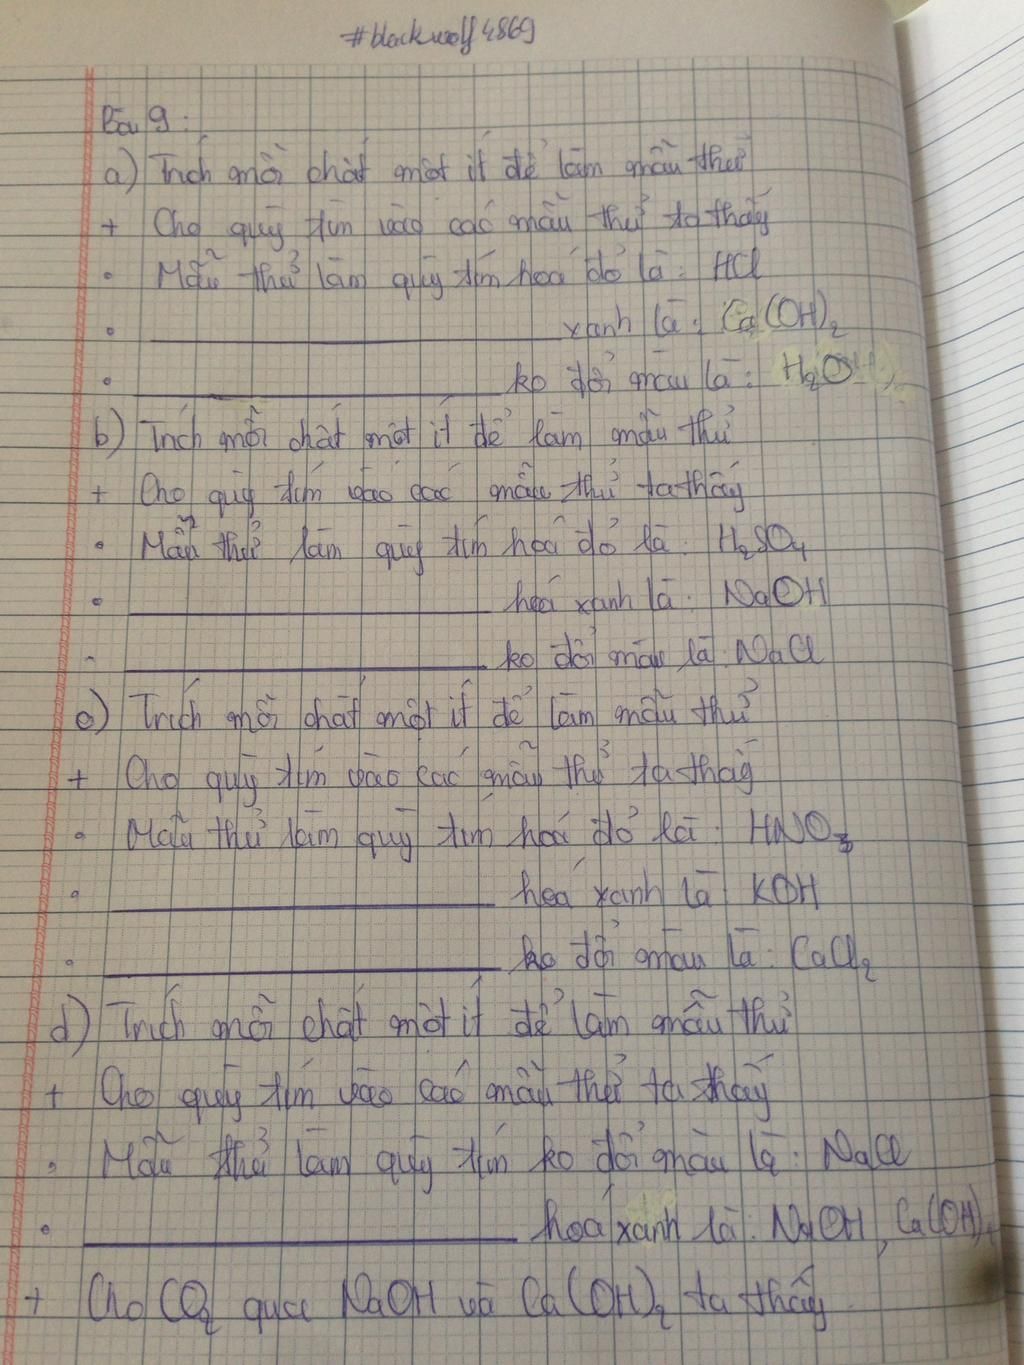 #blackwolf4869
Bài 9:
a) Trích mỗi chất một ít để làm mẫu thử
+ Cho quỳ tím vào các mẫu thử ta thấy
• Mẫu thử làm quỳ tím hoá đỏ là: HCl
• ____________ xanh là: Ca(OH)₂
• ____________ ko đổi màu là: H₂O
b) Trích mỗi chất một ít để làm mẫu thử
+ Cho quỳ tím vào các mẫu thử ta thấy
• Mẫu thử làm quỳ tím hoá đỏ là: H₂SO₄
• ____________ hoá xanh là: NaOH
- ____________ ko đổi màu là: NaCl
c) Trích mỗi chất một ít để làm mẫu thử
+ Cho quỳ tím vào các mẫu thử ta thấy
• Mẫu thử làm quỳ tím hoá đỏ là: HNO₃
• ____________ hoá xanh là KOH
• ____________ ko đổi màu là: CaCl₂
d) Trích mỗi chất một ít để làm mẫu thử
+ Cho quỳ tím vào các mẫu thử ta thấy
• Mẫu thử làm quỳ tím ko đổi màu là: NaCl
• ____________ hoá xanh là: NaOH, Ca(OH)₂
+ Cho CO₂ qua NaOH và Ca(OH)₂ ta thấy